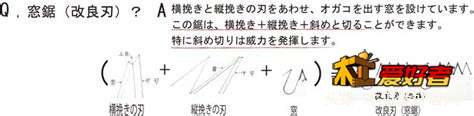 Q，窓鋸（改良刃）？ A 横挽きと縦挽きの刃をあわせ、オガコを出す窓を設けています。
この鋸は、横挽き＋縦挽き＋斜めと切ることができます。
特に斜め切りは威力を発揮します。
木工爱好者
横挽きの刃
縦挽きの刃
窓
改良刃（窓鋸）